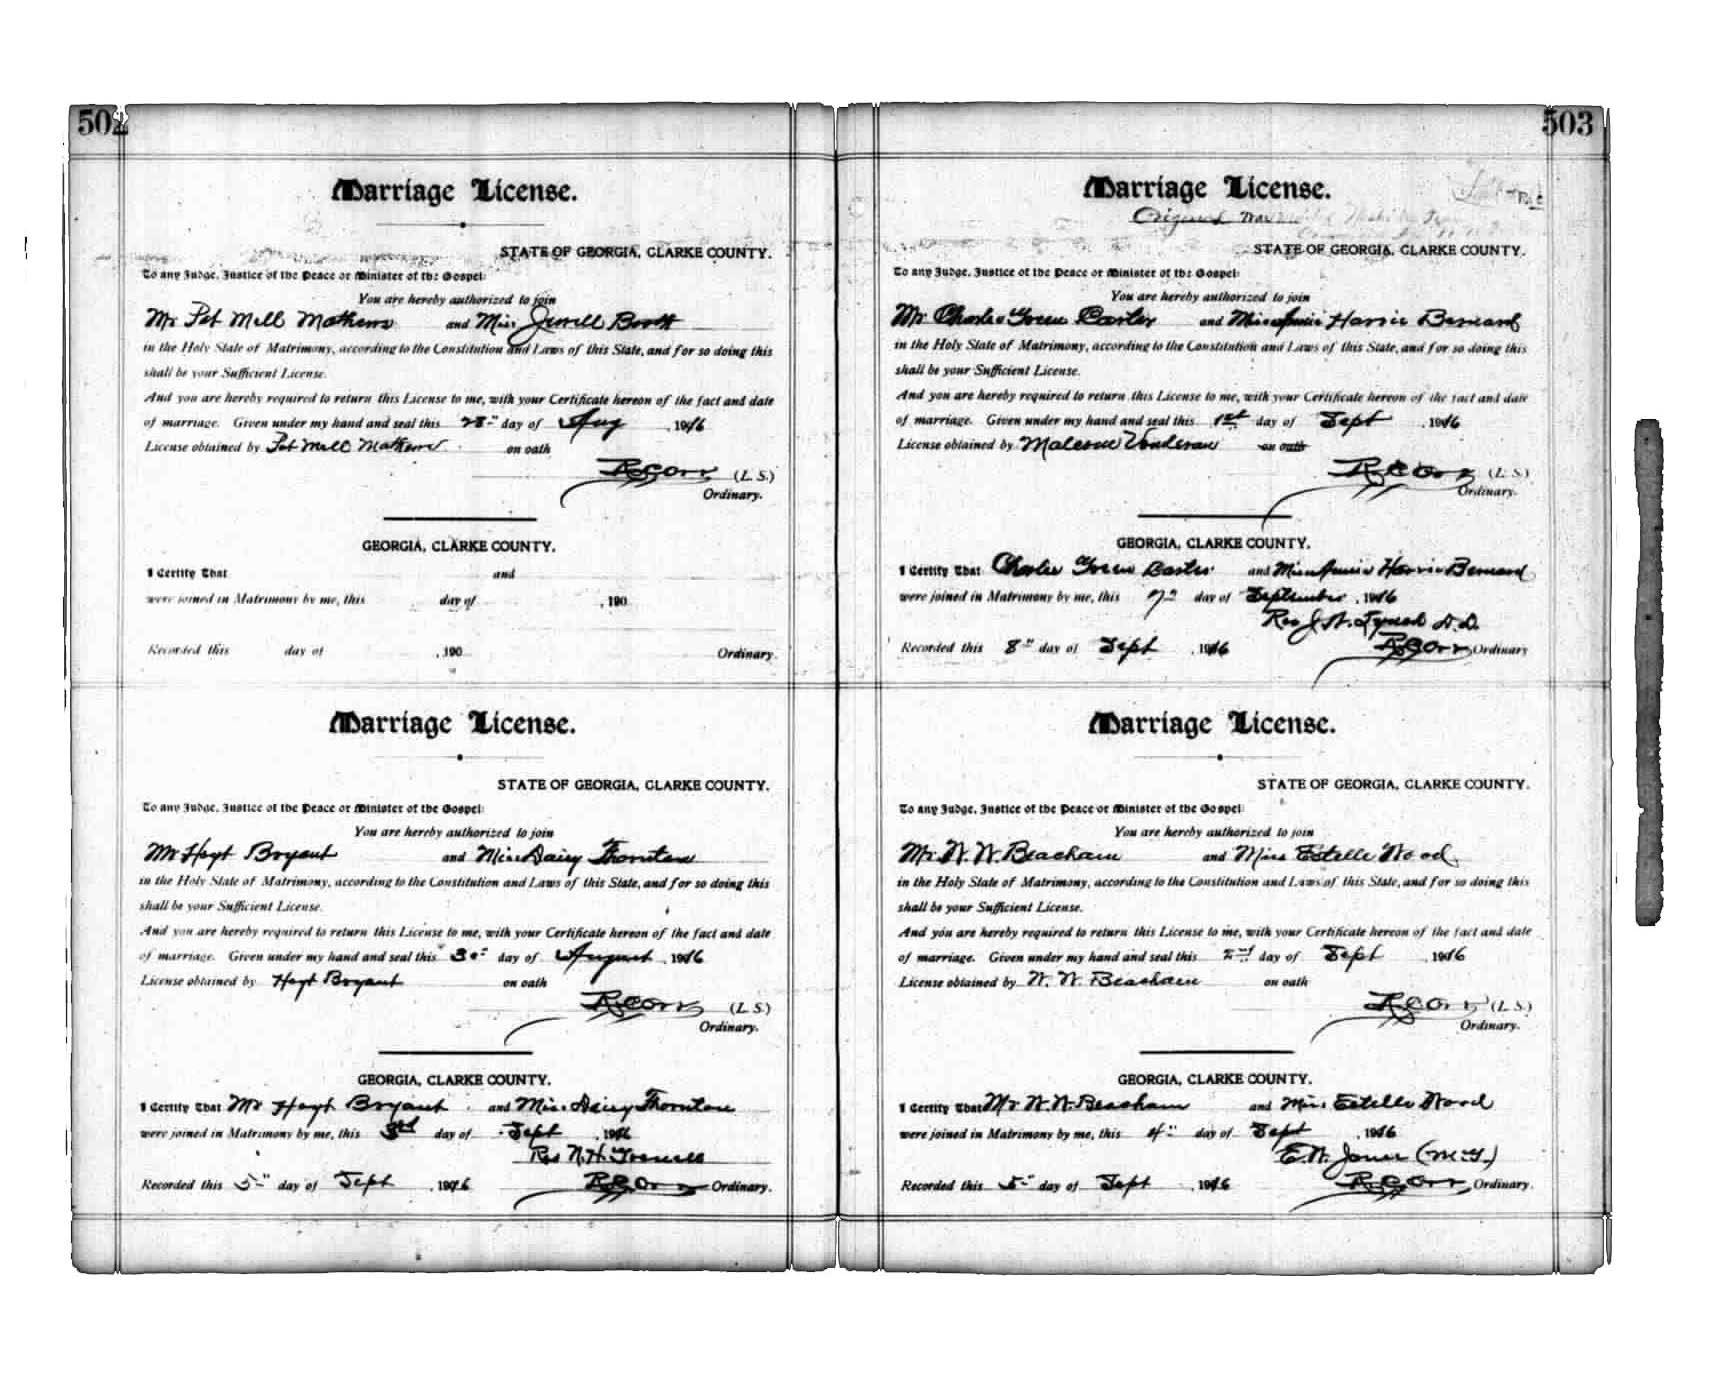 502
Marriage License.
STATE OF GEORGIA, CLARKE COUNTY.
To any Judge, Justice of the Peace or Minister of the Gospel:
You are hereby authorized to join
Mr Pat Mell Mathews and Miss Jewell Booth
in the Holy State of Matrimony, according to the Constitution and Laws of this State, and for so doing this
shall be your Sufficient License.
And you are hereby required to return this License to me, with your Certificate hereon of the fact and date
of marriage. Given under my hand and seal this 28" day of Aug , 1916
License obtained by Pat Mell Mathews on oath
R C Orr (L. S.)
Ordinary.
GEORGIA, CLARKE COUNTY.
I Certify That and
were joined in Matrimony by me, this day of , 190
Recorded this day of , 190 Ordinary.
Marriage License.
STATE OF GEORGIA, CLARKE COUNTY.
To any Judge, Justice of the Peace or Minister of the Gospel:
You are hereby authorized to join
Mr Hoyt Bryant and Miss Daisy Thornton
in the Holy State of Matrimony, according to the Constitution and Laws of this State, and for so doing this
shall be your Sufficient License.
And you are hereby required to return this License to me, with your Certificate hereon of the fact and date
of marriage. Given under my hand and seal this 30" day of August , 1916
License obtained by Hoyt Bryant on oath
R C Orr (L. S.)
Ordinary.
GEORGIA, CLARKE COUNTY.
I Certify That Mr Hoyt Bryant and Miss Daisy Thornton
were joined in Matrimony by me, this 3rd day of Sept , 1916
Rev
Recorded this 5" day of Sept , 1916 R C Orr Ordinary.
503
Marriage License.
Original
STATE OF GEORGIA, CLARKE COUNTY.
To any Judge, Justice of the Peace or Minister of the Gospel:
You are hereby authorized to join
Mr Charles Green Carter and Miss Annie Harris Bernard
in the Holy State of Matrimony, according to the Constitution and Laws of this State, and for so doing this
shall be your Sufficient License.
And you are hereby required to return this License to me, with your Certificate hereon of the fact and date
of marriage. Given under my hand and seal this 1st day of Sept , 1916
License obtained by on oath
R C Orr (L. S.)
Ordinary.
GEORGIA, CLARKE COUNTY.
I Certify That Charles Green Carter and Miss Annie Harris Bernard
were joined in Matrimony by me, this 7" day of September , 1916
Rev J. W. Lynch D. D.
Recorded this 8" day of Sept , 1916 R C Orr Ordinary
Marriage License.
STATE OF GEORGIA, CLARKE COUNTY.
To any Judge, Justice of the Peace or Minister of the Gospel:
You are hereby authorized to join
Mr. W. W. Beacham and Miss Estelle Wood
in the Holy State of Matrimony, according to the Constitution and Laws of this State, and for so doing this
shall be your Sufficient License.
And you are hereby required to return this License to me, with your Certificate hereon of the fact and date
of marriage. Given under my hand and seal this 2nd day of Sept , 1916
License obtained by W. W. Beacham on oath
R C Orr (L. S.)
Ordinary.
GEORGIA, CLARKE COUNTY.
I Certify That Mr. W. W. Beacham and Miss Estelle Wood
were joined in Matrimony by me, this 4" day of Sept , 1916
E. W. Jones (M. G.)
Recorded this 5" day of Sept , 1916 R C Orr Ordinary.